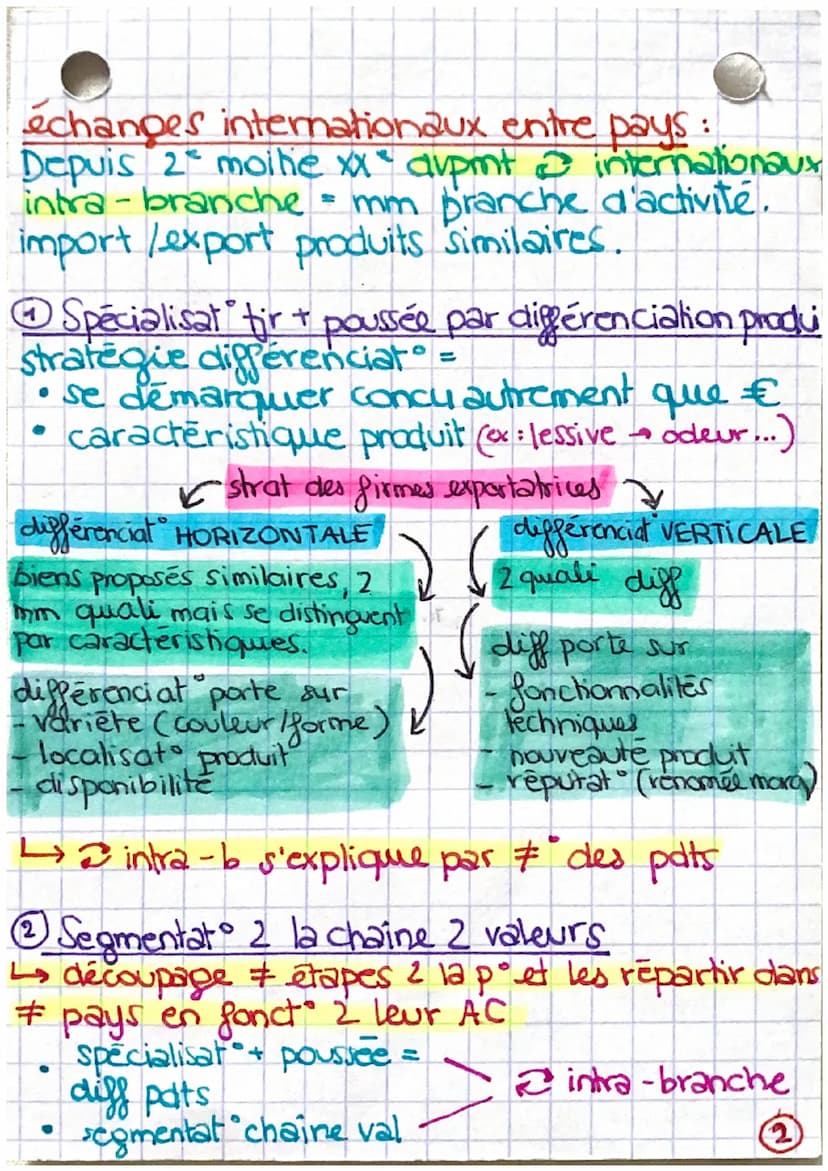 échanges internationaux entre pays :
Depuis 2e moitié XXe dvpmt ⇄ internationaux
intra-branche = mm branche d'activité.
import/export produits similaires.
① Spécialisat° tjr + poussée par différenciation produi
stratégie différenciat° =
• se démarquer concu autrement que €
• caractéristique produit (ex : lessive → odeur...)
↙ strat des firmes exportatrices ↘
différenciat° HORIZONTALE
biens proposés similaires, 2
mm quali mais se distinguent
par caractéristiques.
différenciat° porte sur
- variété (couleur/forme)
- localisat° produit
- disponibilité
différenciat° VERTICALE
2 quali diff
diff porte sur
- fonctionnalités
techniques
- nouveauté produit
- réputat° (renomée marq)
↳ ⇄ intra-b s'explique par ≠° des pdts
② Segmentat° 2 la chaîne 2 valeurs
↳ découpage ≠ étapes 2 la p° et les répartir dans
≠ pays en fonct° 2 leur AC
• spécialisat° + poussée =
diff pdts
• segmentat° chaîne val
⇄ intra-branche
②